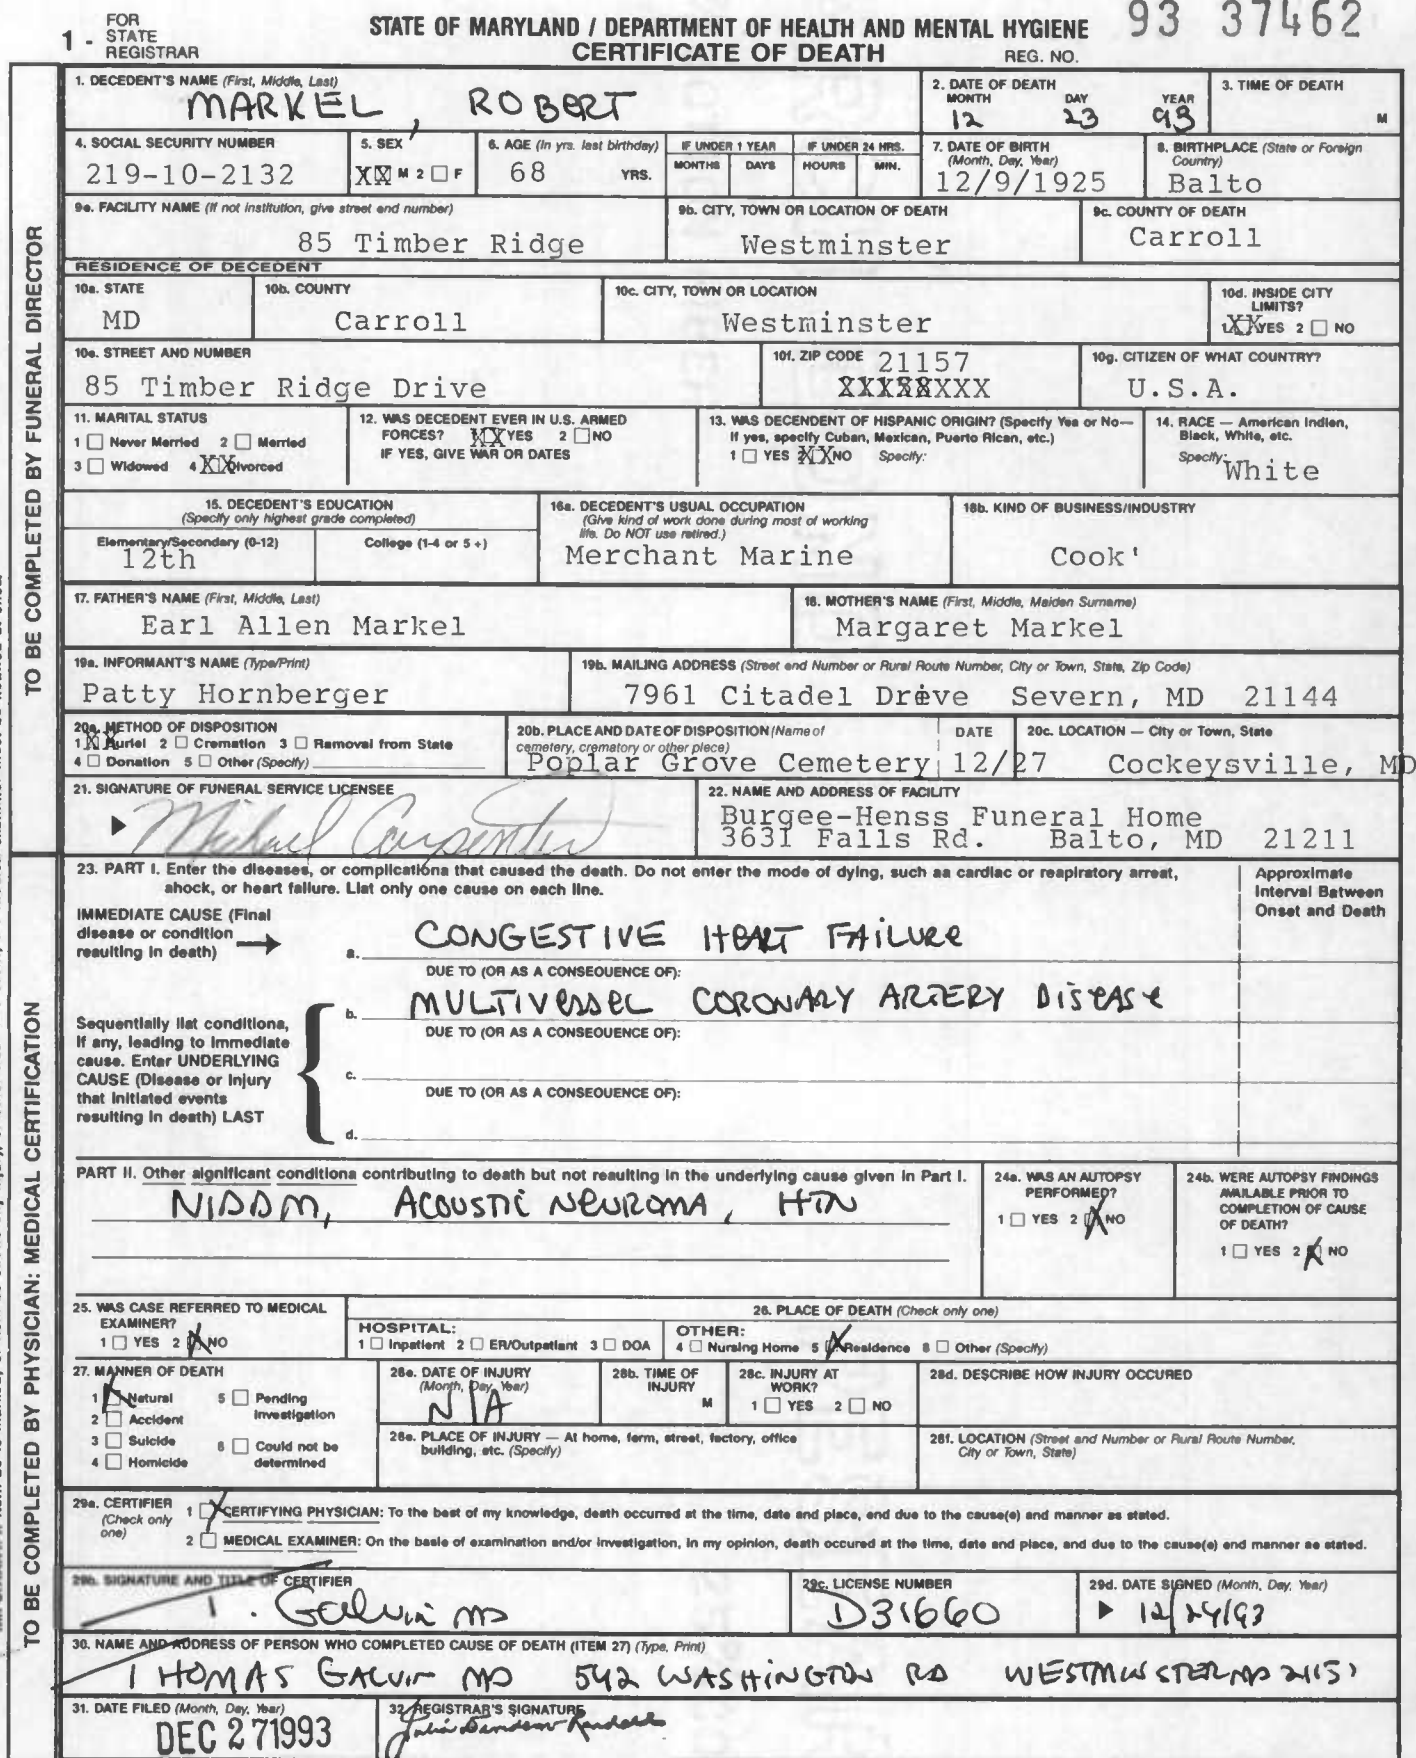 FOR STATE REGISTRAR
1 -
STATE OF MARYLAND / DEPARTMENT OF HEALTH AND MENTAL HYGIENE
93 37462
CERTIFICATE OF DEATH
REG. NO.
TO BE COMPLETED BY FUNERAL DIRECTOR
1. DECEDENT'S NAME (First, Middle, Last)
MARKEL, ROBERT
2. DATE OF DEATH
MONTH DAY YEAR
12 23 93
3. TIME OF DEATH
M
4. SOCIAL SECURITY NUMBER
219-10-2132
5. SEX
XX M 2 F
6. AGE (In yrs. last birthday)
68 YRS.
IF UNDER 1 YEAR
MONTHS DAYS
IF UNDER 24 HRS.
HOURS MIN.
7. DATE OF BIRTH
(Month, Day, Year)
12/9/1925
8. BIRTHPLACE (State or Foreign
Country)
Balto
9a. FACILITY NAME (If not institution, give street and number)
85 Timber Ridge
9b. CITY, TOWN OR LOCATION OF DEATH
Westminster
9c. COUNTY OF DEATH
Carroll
RESIDENCE OF DECEDENT
10a. STATE
MD
10b. COUNTY
Carroll
10c. CITY, TOWN OR LOCATION
Westminster
10d. INSIDE CITY
LIMITS?
1 XX YES 2 NO
10e. STREET AND NUMBER
85 Timber Ridge Drive
10f. ZIP CODE 21157
10g. CITIZEN OF WHAT COUNTRY?
U.S.A.
11. MARITAL STATUS
1 Never Married 2 Married
3 Widowed 4 XX Divorced
12. WAS DECEDENT EVER IN U.S. ARMED
FORCES? XX YES 2 NO
IF YES, GIVE WAR OR DATES
13. WAS DECENDENT OF HISPANIC ORIGIN? (Specify Yes or No—
If yes, specify Cuban, Mexican, Puerto Rican, etc.)
1 YES XX NO Specify:
14. RACE — American Indian,
Black, White, etc.
Specify: White
15. DECEDENT'S EDUCATION
(Specify only highest grade completed)
Elementary/Secondary (0-12)
12th
College (1-4 or 5+)
16a. DECEDENT'S USUAL OCCUPATION
(Give kind of work done during most of working
life. Do NOT use retired.)
Merchant Marine
16b. KIND OF BUSINESS/INDUSTRY
Cook'
17. FATHER'S NAME (First, Middle, Last)
Earl Allen Markel
18. MOTHER'S NAME (First, Middle, Maiden Surname)
Margaret Markel
19a. INFORMANT'S NAME (Type/Print)
Patty Hornberger
19b. MAILING ADDRESS (Street and Number or Rural Route Number, City or Town, State, Zip Code)
7961 Citadel Drive Severn, MD 21144
20a. METHOD OF DISPOSITION
1 XX Burial 2 Cremation 3 Removal from State
4 Donation 5 Other (Specify)
20b. PLACE AND DATE OF DISPOSITION (Name of
cemetery, crematory or other place)
Poplar Grove Cemetery
DATE
12/27
20c. LOCATION — City or Town, State
Cockeysville, MD
21. SIGNATURE OF FUNERAL SERVICE LICENSEE
Michael Carpenter
22. NAME AND ADDRESS OF FACILITY
Burgee-Henss Funeral Home
3631 Falls Rd. Balto, MD 21211
TO BE COMPLETED BY PHYSICIAN: MEDICAL CERTIFICATION
23. PART I. Enter the diseases, or complications that caused the death. Do not enter the mode of dying, such as cardiac or respiratory arrest,
shock, or heart failure. List only one cause on each line.
Approximate
Interval Between
Onset and Death
IMMEDIATE CAUSE (Final
disease or condition
resulting in death)
a. CONGESTIVE HEART FAILURE
DUE TO (OR AS A CONSEQUENCE OF):
b. MULTIVESSEL CORONARY ARTERY DISEASE
DUE TO (OR AS A CONSEQUENCE OF):
c.
DUE TO (OR AS A CONSEQUENCE OF):
d.
Sequentially list conditions,
if any, leading to immediate
cause. Enter UNDERLYING
CAUSE (Disease or injury
that initiated events
resulting in death) LAST
PART II. Other significant conditions contributing to death but not resulting in the underlying cause given in Part I.
NIDDM, ACOUSTIC NEUROMA, HTN
24a. WAS AN AUTOPSY
PERFORMED?
1 YES 2 X NO
24b. WERE AUTOPSY FINDINGS
AVAILABLE PRIOR TO
COMPLETION OF CAUSE
OF DEATH?
1 YES 2 X NO
25. WAS CASE REFERRED TO MEDICAL
EXAMINER?
1 YES 2 X NO
26. PLACE OF DEATH (Check only one)
HOSPITAL:
1 Inpatient 2 ER/Outpatient 3 DOA
OTHER:
4 Nursing Home 5 X Residence 6 Other (Specify)
27. MANNER OF DEATH
1 X Natural 5 Pending
2 Accident Investigation
3 Suicide 6 Could not be
4 Homicide determined
28a. DATE OF INJURY
(Month, Day, Year)
N/A
28b. TIME OF
INJURY
M
28c. INJURY AT
WORK?
1 YES 2 NO
28d. DESCRIBE HOW INJURY OCCURED
28e. PLACE OF INJURY — At home, farm, street, factory, office
building, etc. (Specify)
28f. LOCATION (Street and Number or Rural Route Number,
City or Town, State)
29a. CERTIFIER
(Check only
one)
1 X CERTIFYING PHYSICIAN: To the best of my knowledge, death occurred at the time, date and place, and due to the cause(s) and manner as stated.
2 MEDICAL EXAMINER: On the basis of examination and/or investigation, in my opinion, death occured at the time, date and place, and due to the cause(s) and manner as stated.
29b. SIGNATURE AND TITLE OF CERTIFIER
T. Galvin MD
29c. LICENSE NUMBER
D31660
29d. DATE SIGNED (Month, Day, Year)
12/24/93
30. NAME AND ADDRESS OF PERSON WHO COMPLETED CAUSE OF DEATH (ITEM 27) (Type, Print)
THOMAS GALVIN MD 542 WASHINGTON RD WESTMINSTER MD 21157
31. DATE FILED (Month, Day, Year)
DEC 27 1993
32. REGISTRAR'S SIGNATURE